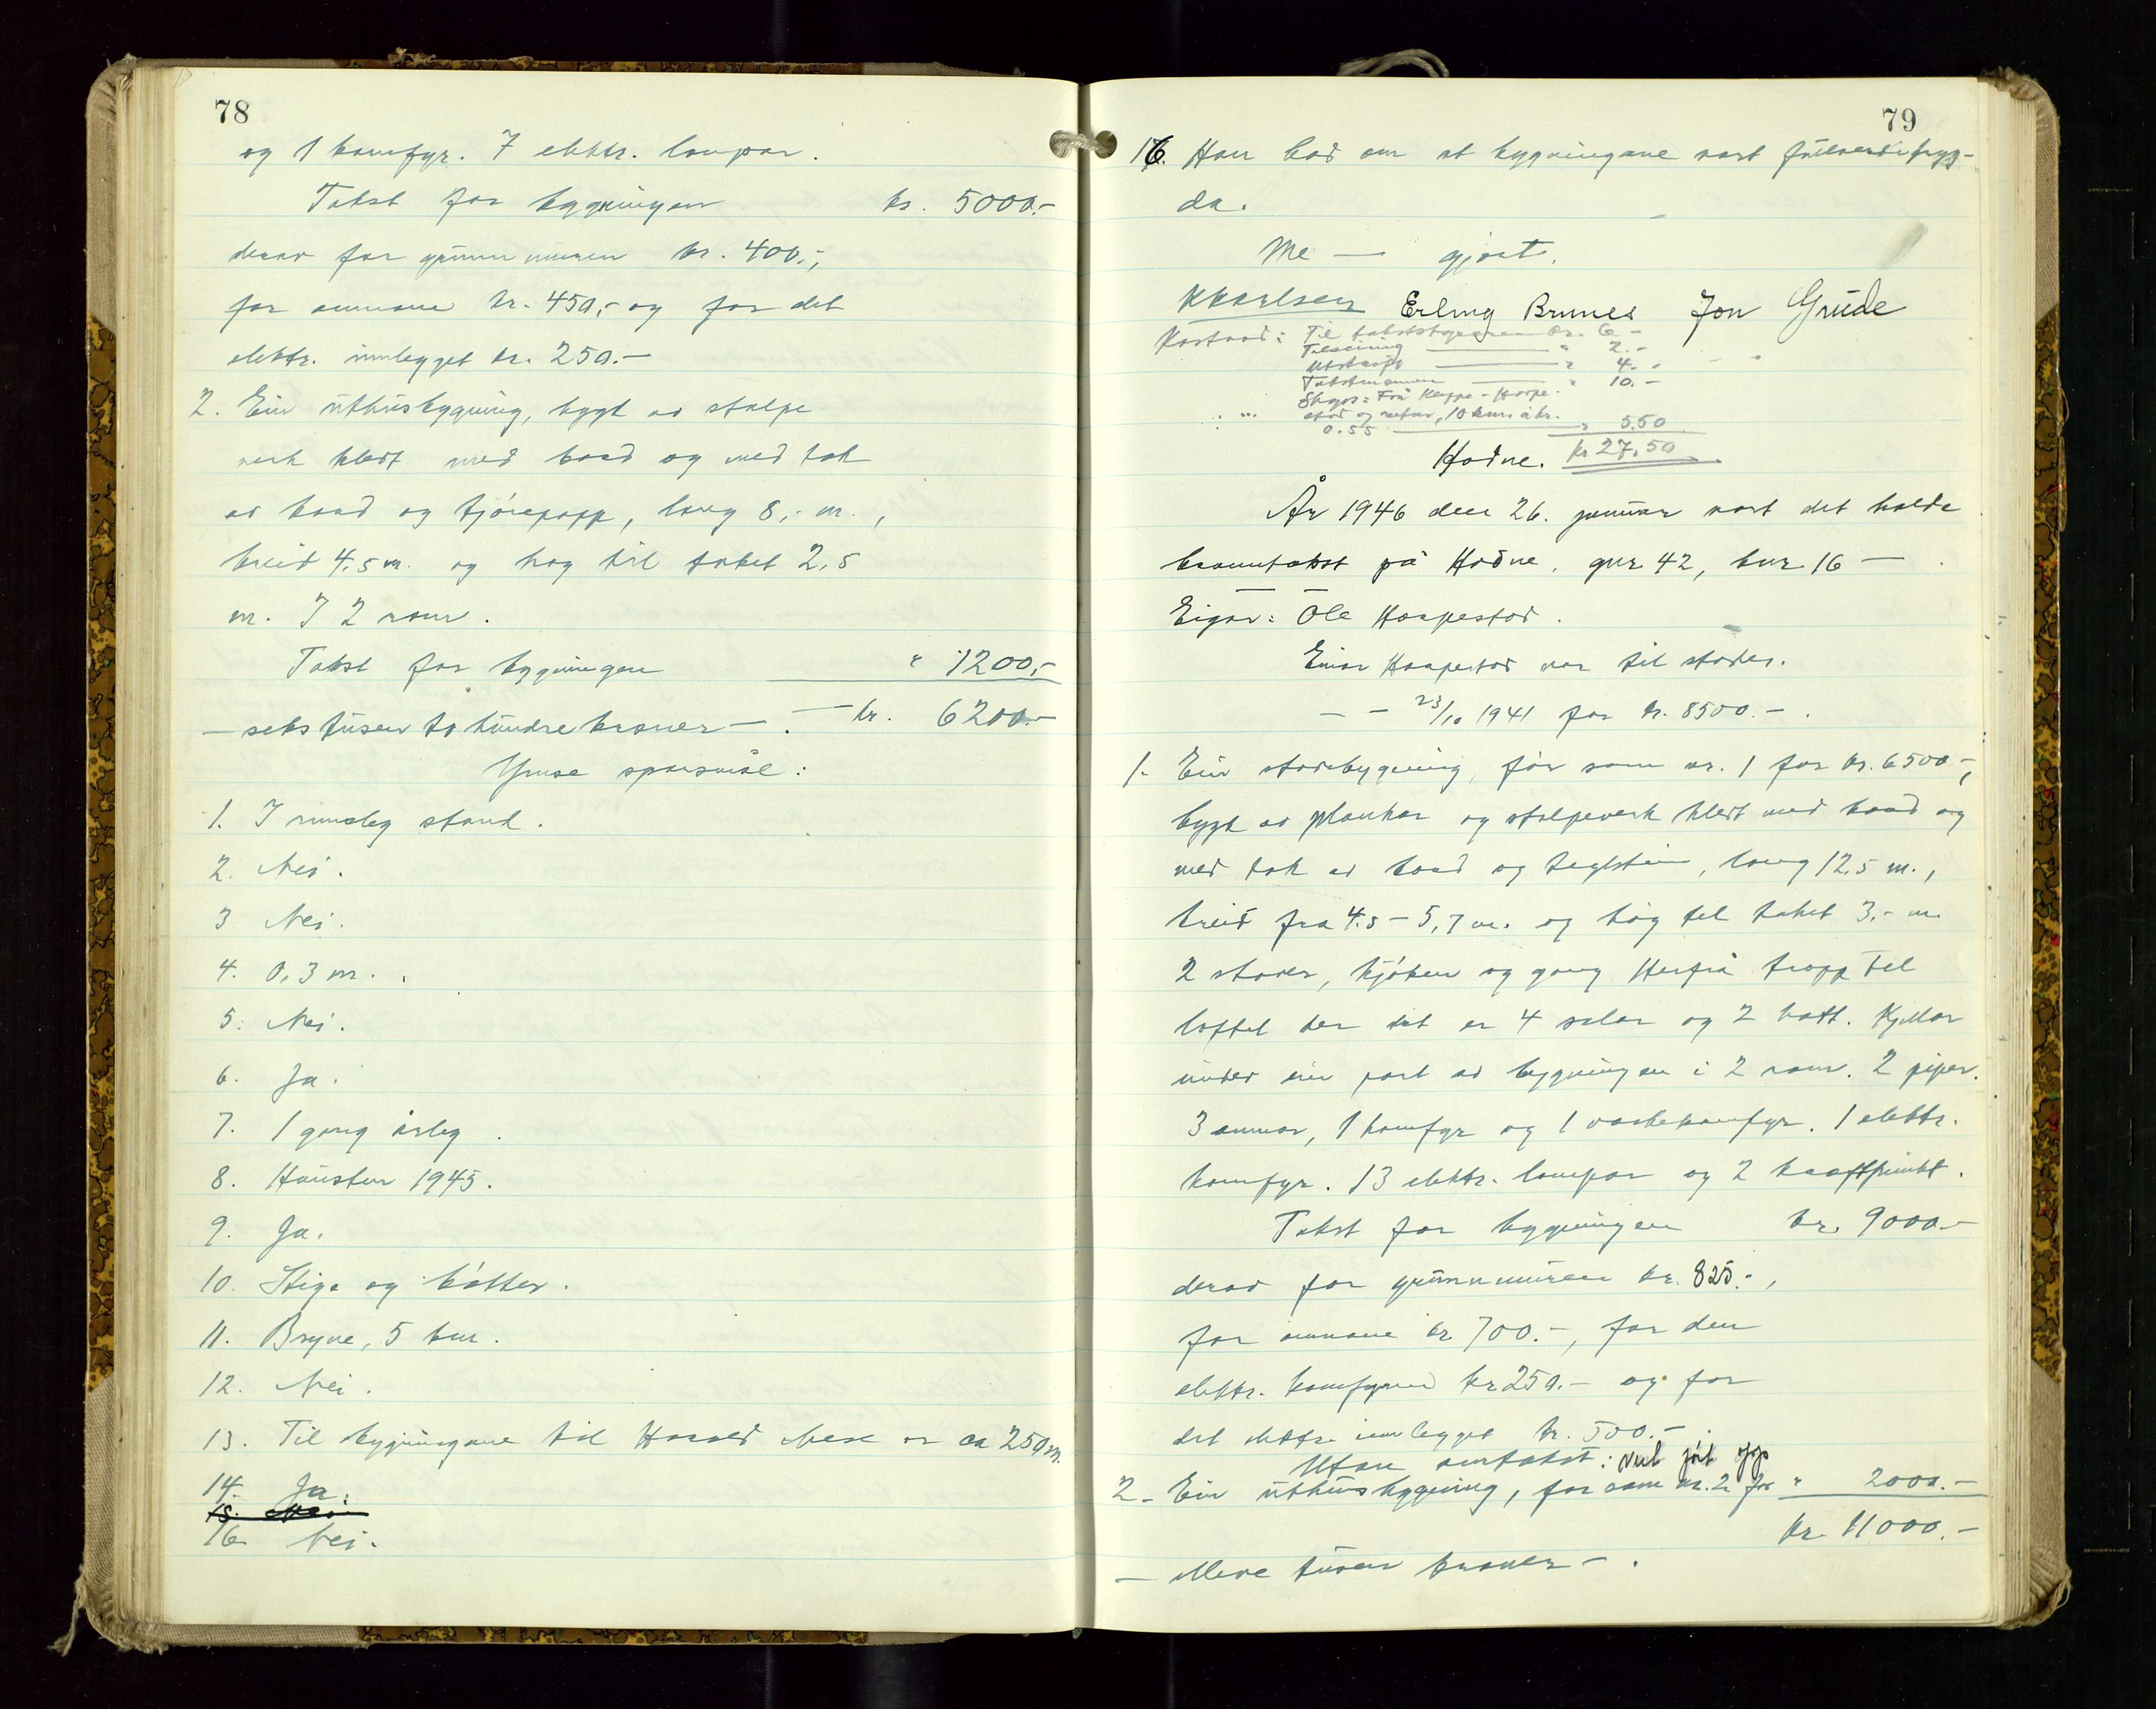 78
og 1 komfyr. 7 elektr. lampar.
Takst for bygningen kr. 5000.-
derav for grunnmuren kr. 400.-,
for omnane kr. 450,- og for det
elektr. innlegget kr. 250.-
2. Ein uthusbygning, bygt av stolpe
verk kledt med bord og med tak
av bord og tjørepapp, lang 8,- m.,
breid 4,5 m. og høg til taket 2,5
m. I 2 rom.
Takst for bygningen " 1200,-
- seks tusen to hundre kroner - . - kr. 6200.-
Ymse spørsmål:
1. I rimeleg stand.
2. Nei.
3 Nei.
4. 0,3 m.
5. Nei.
6. Ja.
7. 1 gong årleg.
8. Hausten 1945.
9. Ja.
10. Stige og bøtter.
11. Bryne, 5 km.
12. Nei.
13. Til bygningane til Harald er ca 250 m.
14. Ja.
15. Nei.
16 Nei.
79
16. Han bad om at bygningane vart fullverditryg-
da.
Me — gjort.
K Karlsen Erling Brunes Jon Grude
Kostnad: Til takststyraren kr. 6.-
Tilseiing — " 2.-
Utskrift — " 4.-
Takstmennene — " 10.-
Skyss: Frå Kleppe - Horpe-
stad og retur, 10 km. à kr.
0.55 — " 5.50
Hodne. kr 27,50
År 1946 den 26. januar vart det halde
branntakst på Hodne, gnr 42, bnr. 16 —
Eigar: Ole Horpestad.
Einar Horpestad var til stades.
- - 23/10 1941 for kr. 8500.- .
1. Ein stovebygning, før som nr. 1 for kr. 6500.-,
bygt av plankar og stolpeverk kledt med bord og
med tak av bord og teglstein, lang 12,5 m.,
breid fra 4,5 - 5,7 m. og høg til taket 3,- m.
2 stover, kjøken og gang. Herfrå trapp til
loftet der det er 4 salar og 2 kott. Kjellar
under ein part av bygningen i 2 rom. 2 piper.
3 omnar, 1 komfyr og 1 vaskekomfyr. 1 elektr.
komfyr. 13 elektr. lampar og 2 kraftpunkt.
Takst for bygningen kr. 9000.-
derav for grunnmuren kr. 825.-,
for omnane kr 700.-, for den
elektr. komfyren kr 250.- og for
det elektr. innlegget kr. 500.-.
Utan omtakst:
2. Ein uthusbygning, før som nr. 2 for " 2000.-
kr. 11000.-
- elleve tusen kroner - .